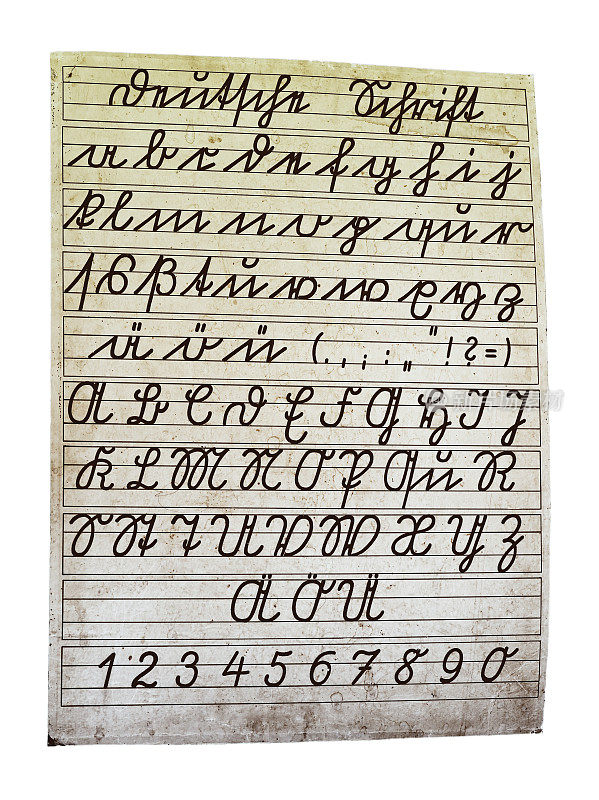 Deutsche Schrift
a b c d e f g h i j
k l m n o p qu r
ſ s ß t u v w x y z
ä ö ü ( . , ; : „ “ ! ? = )
A B C D E F G H I J
K L M N O P Qu R
S St T U V W X Y Z
Ä Ö Ü
1 2 3 4 5 6 7 8 9 0